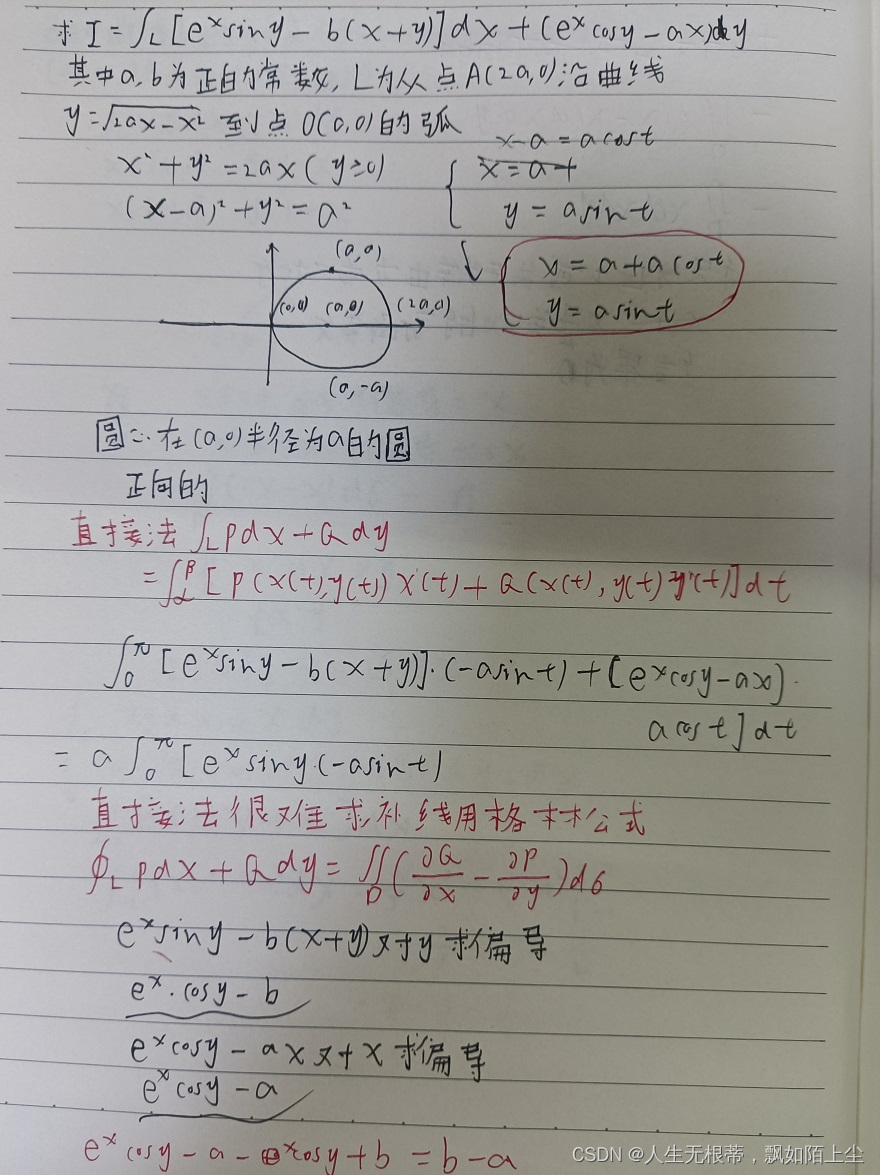 求 I = ∫_L [e^x sin y - b(x+y)]dx + (e^x cos y - ax)dy
其中a, b为正的常数, L为从点A(2a,0)沿曲线
y = √(2ax-x²) 至点 O(0,0)的弧
x² + y² = 2ax ( y≥0)
(x-a)² + y² = a²
x-a = a cos t
x = a +
y = a sin t
x = a + a cos t
y = a sin t
(a,a)
(0,0)
(a,0)
(2a,0)
(a,-a)
圆心在(a,0)半径为a的圆
正向的
直接法 ∫_L Pdx + Qdy
= ∫_α^β [P(x(t),y(t))x'(t) + Q(x(t),y(t))y'(t)]dt
∫_0^π [e^x sin y - b(x+y)]·(-a sin t) + [e^x cos y - ax]·
a cos t] dt
= a ∫_0^π [e^x sin y·(-a sin t)
直接法很难求补线用格林公式
∮_L Pdx + Qdy = ∬_D (∂Q/∂x - ∂P/∂y)dσ
e^x sin y - b(x+y)对y求偏导
e^x · cos y - b
e^x cos y - ax对x求偏导
e^x cos y - a
e^x cos y - a - e^x cos y + b = b - a
CSDN @人生无根蒂，飘如陌上尘